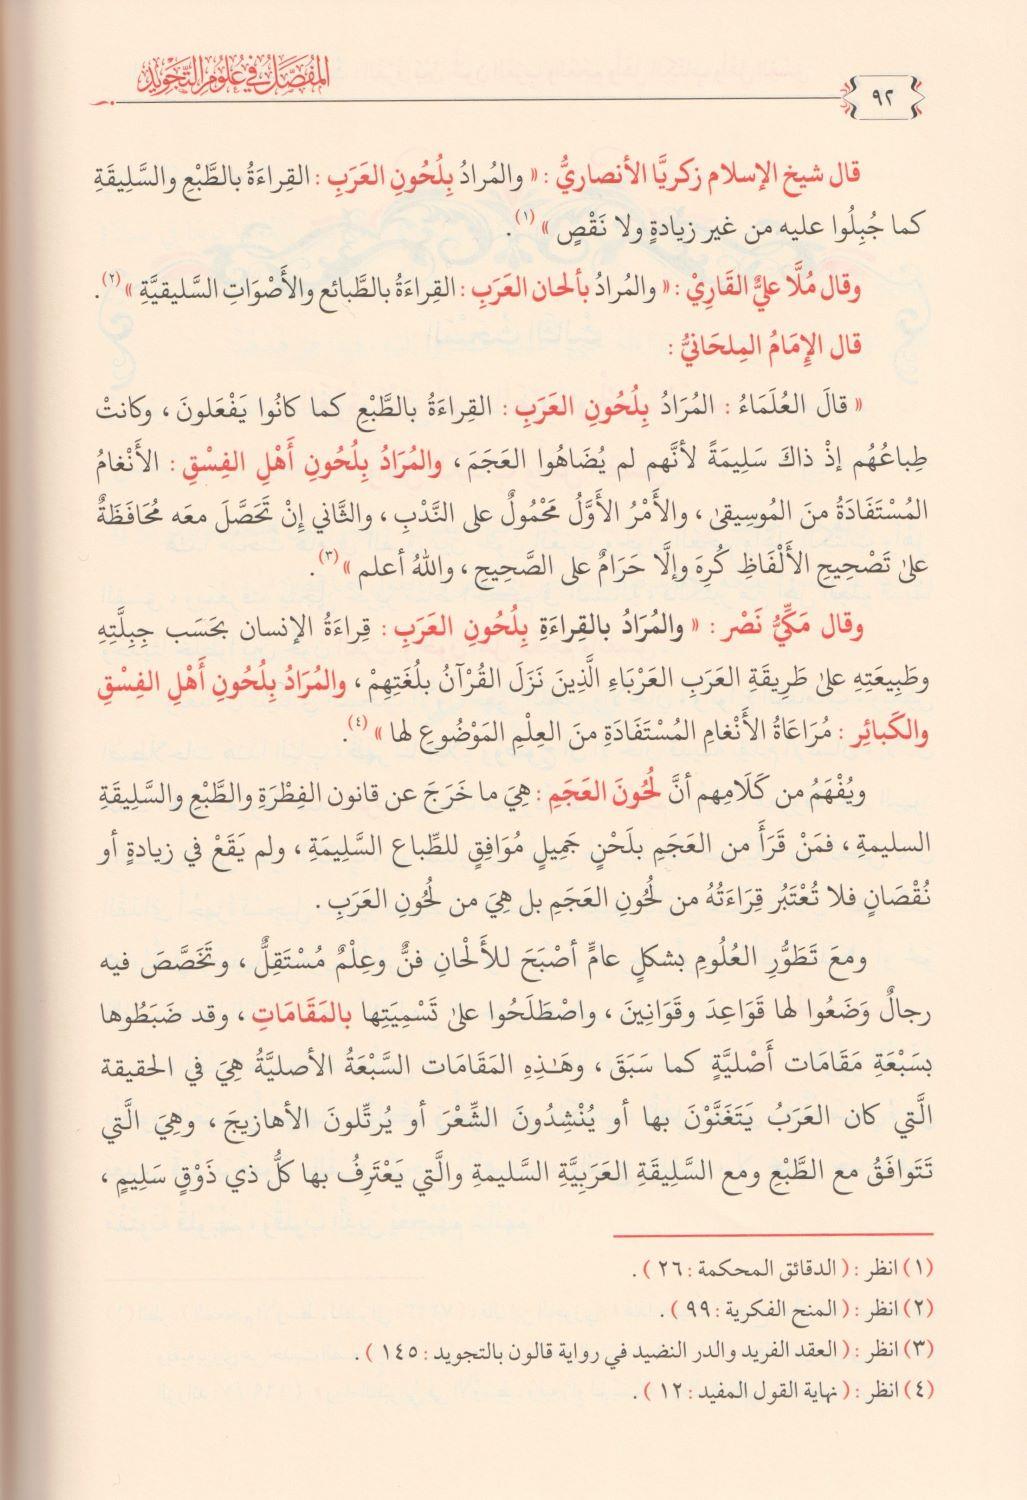 المُفَصَّلُ فِي عُلُومِ التَّجْوِيدِ
٩٢
قال شيخ الإسلام زكريَّا الأنصاريُّ : « والمُرادُ بِلُحُونِ العَرَبِ : القِراءَةُ بالطَّبْعِ والسَّلِيقَةِ
كما جُبِلُوا عليه من غير زيادةٍ ولا نَقْصٍ » (١).
وقال مُلَّا عليٌّ القَارِيْ : « والمُرادُ بألحان العَرَبِ : القِراءَةُ بالطَّبائع والأَصْوَاتِ السَّليقيَّةِ » (٢).
قال الإمَامُ المِلحَانيُّ :
« قالَ العُلَمَاءُ : المُرَادُ بِلُحُونِ العَرَبِ : القِرَاءَةُ بالطَّبْعِ كما كانُوا يَفْعَلونَ ، وكانتْ
طِباعُهُم إذْ ذاكَ سَلِيمَةً لأنَّهم لم يُضَاهُوا العَجَمَ ، والمُرَادُ بِلُحُونِ أَهْلِ الفِسْقِ : الأَنْغامُ
المُسْتَفَادَةُ منَ المُوسِيقىٰ ، والأَمْرُ الأَوَّلُ مَحْمُولٌ على النَّدْبِ ، والثَّاني إنْ تَحَصَّلَ معَه مُحَافَظَةٌ
علىٰ تَصْحِيحِ الأَلْفَاظِ كُرِهَ وإلَّا حَرَامٌ على الصَّحِيحِ ، واللهُ أعلم » (٣).
وقال مَكِّيُّ نَصْر : « والمُرَادُ بالقِراءَةِ بِلُحُونِ العَرَبِ : قِراءَةُ الإنسان بحَسَب جِبِلَّتِهِ
وطَبِيعَتِهِ علىٰ طَرِيقَةِ العَرَبِ العَرْبَاءِ الَّذِينَ نَزَلَ القُرْآنُ بلُغَتِهِمْ ، والمُرَادُ بِلُحُونِ أَهْلِ الفِسْقِ
والكَبائِر : مُرَاعَاةُ الأَنْغامِ المُسْتَفَادَةِ منَ العِلْمِ المَوْضُوعِ لها » (٤).
ويُفْهَمُ من كَلَامِهم أنَّ لُحُونَ العَجَمِ : هِيَ ما خَرَجَ عن قانون الفِطْرَةِ والطَّبْعِ والسَّلِيقَةِ
السليمةِ ، فمَنْ قَرَأَ من العَجَمِ بلَحْنٍ جَمِيلٍ مُوَافِقٍ للطِّباع السَّلِيمَةِ ، ولم يَقَعْ في زيادةٍ أو
نُقْصَانٍ فلا تُعْتَبَرُ قِرَاءَتُهُ من لُحُونِ العَجَمِ بل هِيَ من لُحُونِ العَرَبِ .
ومعَ تَطَوُّرِ العُلُومِ بشكلٍ عامٍّ أصْبَحَ للأَلْحانِ فنٌّ وعِلْمٌ مُسْتَقِلٌّ ، وتَخَصَّصَ فيه
رجالٌ وَضَعُوا لها قَوَاعِدَ وقَوَانِينَ ، واصْطَلَحُوا علىٰ تَسْمِيَتِها بالمَقَامَاتِ ، وقد ضَبَطُوها
بسَبْعَةِ مَقَامَات أَصْليَّةٍ كما سَبَقَ ، وهَـٰذِهِ المَقَامَات السَّبْعَةُ الأصليَّةُ هِيَ في الحقيقة
الَّتي كان العَرَبُ يَتَغَنَّوْنَ بها أو يُنْشِدُونَ الشِّعْرَ أو يُرَتِّلونَ الأهازيجَ ، وهِيَ الَّتي
تَتَوافَقُ مع الطَّبْعِ ومع السَّلِيقَةِ العَرَبيَّةِ السَّليمةِ والَّتي يَعْتَرِفُ بها كلُّ ذي ذَوْقٍ سَلِيمٍ ،
(١) انظر : ( الدقائق المحكمة : ٢٦ ) .
(٢) انظر : ( المنح الفكرية : ٩٩ ) .
(٣) انظر : ( العقد الفريد والدر النضيد في رواية قالون بالتجويد : ١٤٥ ) .
(٤) انظر : ( نهاية القول المفيد : ١٢ ) .